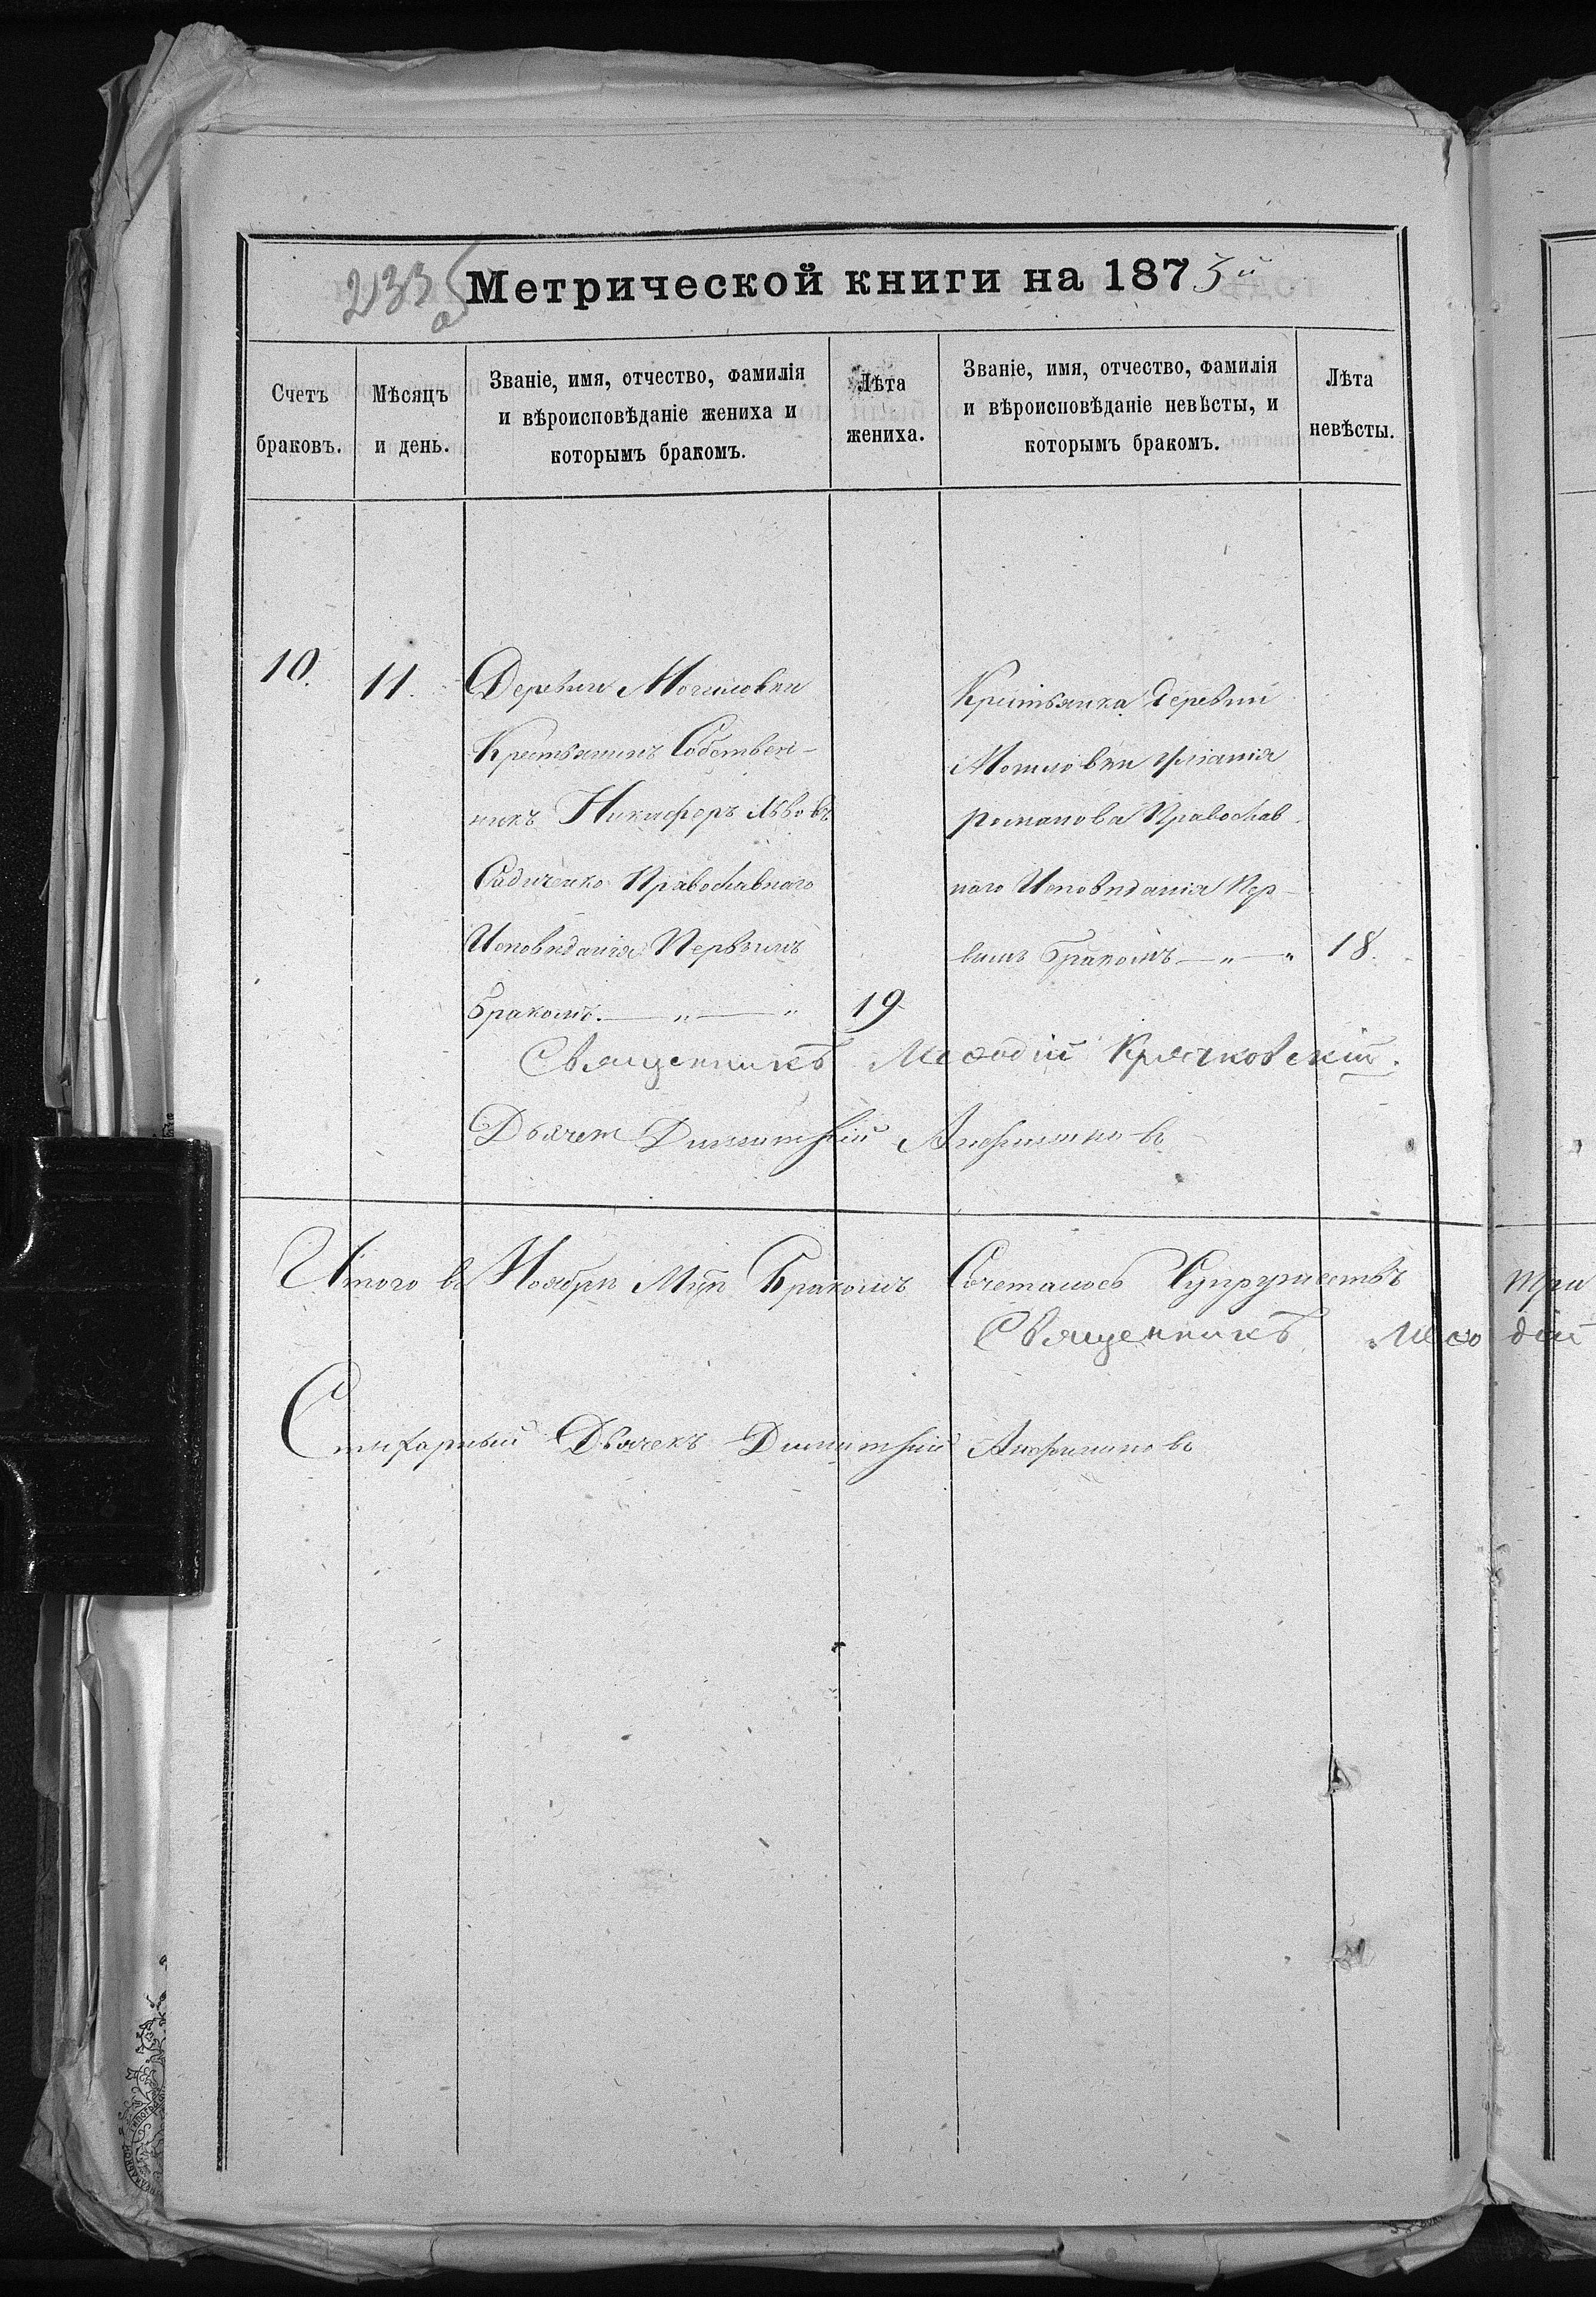 233
Метрической книги на 1875й
Счетъ браковъ.
Мѣсяцъ и день.
Званіе, имя, отчество, фамилія
и вѣроисповѣданіе жениха и
которымъ бракомъ.
Лѣта жениха.
Званіе, имя, отчество, фамилія
и вѣроисповѣданіе невѣсты, и
которымъ бракомъ.
Лѣта невѣсты.
10.
11.
Деревни Могиловки
Крестьянинъ Собствен-
никъ Никифоръ Львовъ
Садиченко Православнаго
Исповѣданія Первымъ
Бракомъ. — „ — „
19
Крестьянка Деревни
Могиловки
Романова Православ
наго Исповѣданія Пер-
вымъ Бракомъ — „ — „
18.
Священникъ Меѳодій Крячковскій.
Дьячек Димитрій
Итого въ Ноябрѣ Мцѣ Бракомъ Сочеталось Супружествъ три
Священникъ Меѳодій
Стихарный Дьячекъ Димитрій